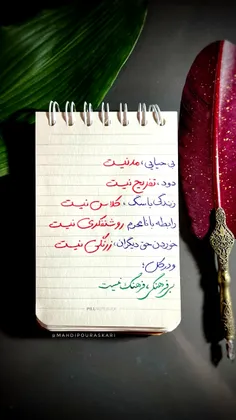 بی حیایی، مدنیت نیست
دود، تفریح نیست
زندگی باسگ، کلاس نیست
رابطه با نامحرم روشنفکری نیست
خوردن حق دیگران، زرنگی نیست
ودرکل؛
بی فرهنگی، فرهنگ نیست
@MAHDIPOURASKARI